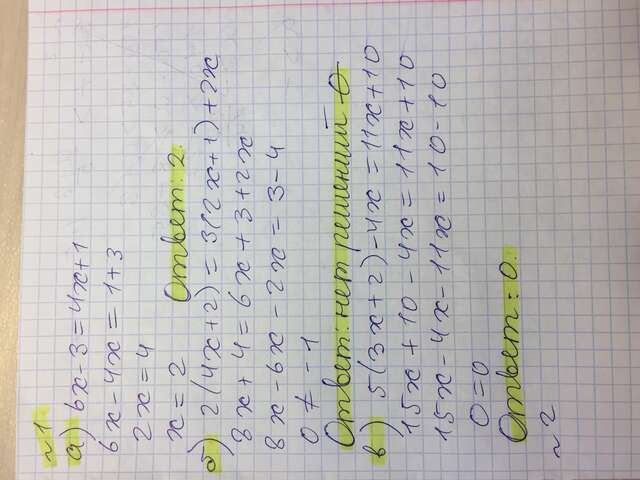 ~ 1
а) 6x-3=4x+1
6x-4x=1+3
2x=4
x=2 Ответ: 2.
б) 2(4x+2)=3(2x+1)+2x
8x+4=6x+3+2x
8x-6x-2x=3-4
0≠-1
Ответ: нет решений
в) 5(3x+2)-4x=11x+10
15x+10-4x=11x+10
15x-4x-11x=10-10
0=0
Ответ: 0.
~ 2